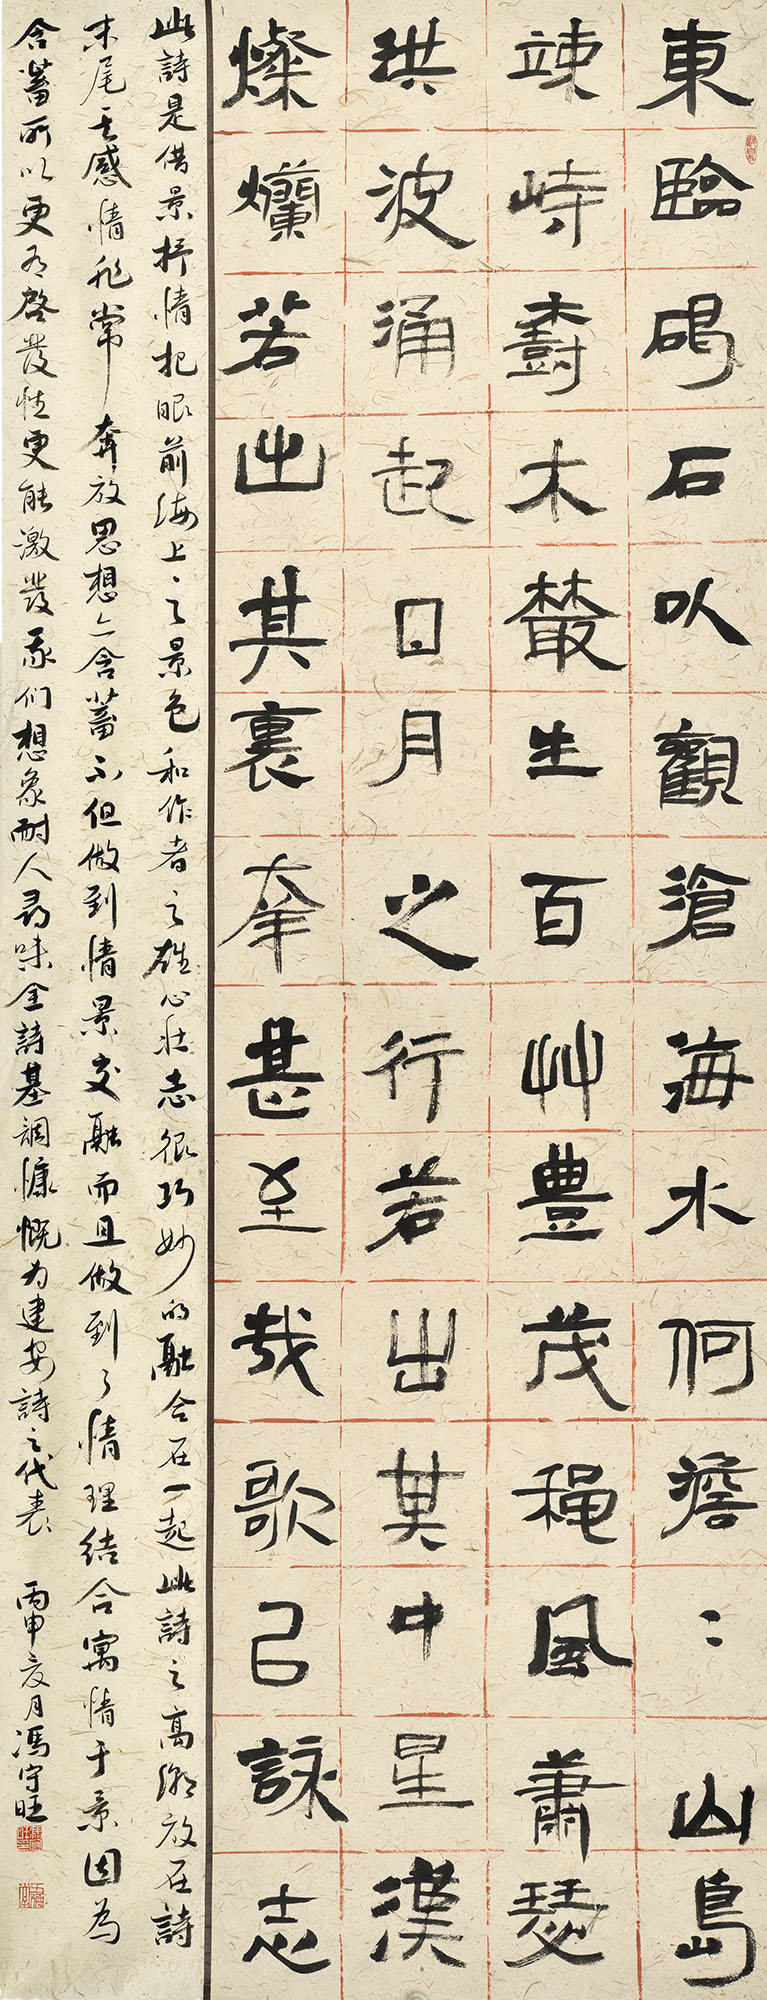 東臨碣石以觀滄海水何澹〻山島
竦峙樹木叢生百艸豊茂穐風蕭瑟
洪波涌起日月之行若出其中星漢
燦爛若出其裏幸甚至哉歌㠯詠志
此詩是借景抒情把眼前海上之景色和作者之雄心壯志很巧妙的融合在一起此詩之高潮放在詩
末尾其感情非常奔放思想亦含蓄不但做到情景交融而且做到了情理结合寓情于景因為
含蓄所以更有啓發性更能激發我们想象耐人尋味全詩基調慷慨为建安詩之代表 丙申夏月馮守旺